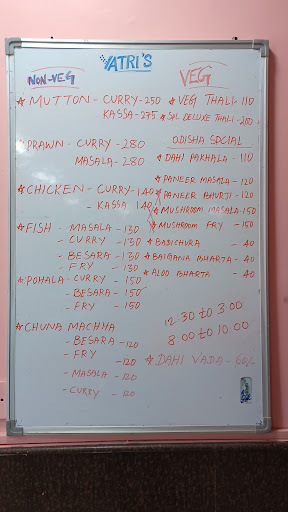 YATRI'S
NON-VEG
★ MUTTON - CURRY - 250
KASSA - 275
★ PRAWN - CURRY - 280
MASALA - 280
★ CHICKEN - CURRY - 140
- KASSA 140
★ FISH - MASALA - 130
- CURRY - 130
- BESARA - 130
- FRY - 130
★ POHALA - CURRY - 150
- BESARA - 150
- FRY - 150
★ CHUNA MACHHA
- BESARA - 120
- FRY - 120
- MASALA - 120
- CURRY - 120
VEG
★ VEG THALI - 110
★ SPL DELUXE THALI - 200
ODISHA SPCIAL
★ DAHI PAKHALA - 110
★ PANEER MASALA - 120
★ PANEER BHURJI - 120
★ MUSHROOM MASALA - 150
★ MUSHROOM FRY - 150
★ BADICHURA - 40
★ BAIGANA BHARTA - 40
★ ALOO BHARTA - 40
12:30 to 3:00
8:00 to 10:00
★ DAHI VADA - 60/-